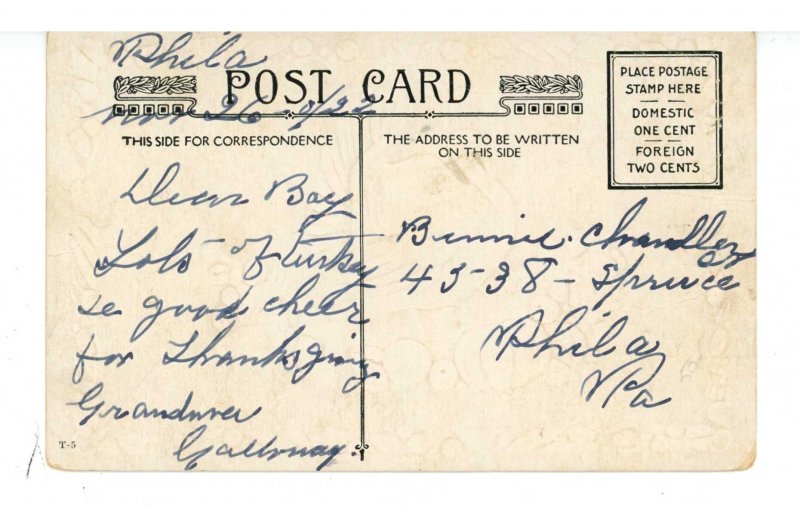 Phila
POST CARD
Nov 26 - 1922
THIS SIDE FOR CORRESPONDENCE
THE ADDRESS TO BE WRITTEN
ON THIS SIDE
PLACE POSTAGE
STAMP HERE
DOMESTIC
ONE CENT
FOREIGN
TWO CENTS
Dear Boy
Lots of turkey
good cheer
for Thanksgiving
Bennie Chandler
45-38 - Spruce
St
Phila
Pa
T-5